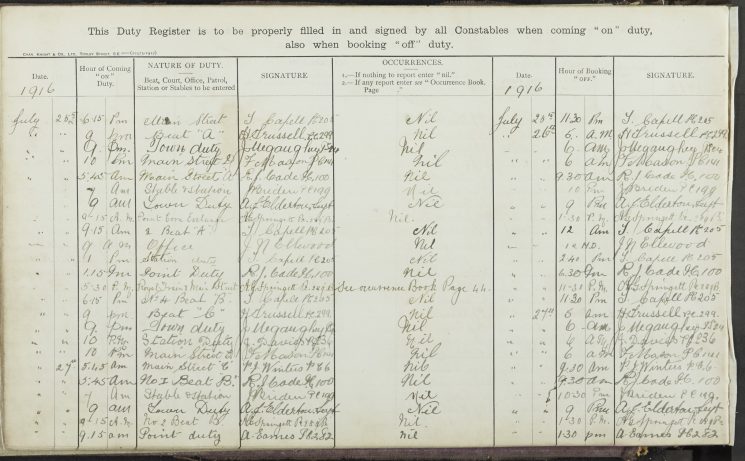 This Duty Register is to be properly filled in and signed by all Constables when coming "on" duty,
also when booking "off" duty.
Date. Hour of Coming "on" Duty. NATURE OF DUTY. Beat, Court, Office, Patrol, Station or Stables to be entered SIGNATURE OCCURRENCES. 1.—If nothing to report enter "nil." 2.—If any report enter see "Occurrence Book. Page ." Date. Hour of Booking "off." SIGNATURE.
1916 1916
July 25th 6.15 Pm Main Street Capell Pc 205 Nil July 25th 11.30 Pm Capell Pc 205
9 Beat "A" H Trussell Pc 299 Nil 26th 6. A.M H Trussell Pc 299
9 Pm. Town duty J Megaughey Nil 6. am J Megaughey
10 Pm Main Street F. Mason Pc 141 Nil 6 am F. Mason Pc 141
5.45 Am Main Street A R J Cade Pc 100 Nil 9.30 am R J Cade Pc 100
7 am Stable & Station J Briden P.C 199 Nil 10 Pm J Briden P.C 199
9 am Town Duty A.J. Elderton, Supt Nil 9 Pm A.J. Elderton, Supt
9-15 A.M. Point Corn Exchange Springett Nil. 1-30 P.M. Springett
9.15 Am 2 Beat "A" Capell Pc 205 Nil 12 Am Capell Pc 205
9 am Office J N Ellwood Nil J N Ellwood
1 Pm Station duty Capell Pc 205 Nil 2.40 Pm Capell Pc 205
1.15 Pm Point Duty R J Cade Pc 100 Nil 6.30 Pm R J Cade Pc 100
5-30 P.M. Main Street Springett See occurrence Book Page 44. 11-30 P.M. Springett
6.15 Pm No 4 Beat "B" Capell Pc 205 Nil 11.30 Pm Capell Pc 205
9 pm Beat "C" H Trussell Pc 299 Nil 27th 6 am H Trussell Pc 299
9 pm Town duty J Megaughey Nil 6 am J Megaughey
10 P.M. Station Duty Davies Pc 236 Nil 6 A.M. Davies Pc 236
10 Pm Main Street F. Mason Pc 141 Nil 6 am F. Mason Pc 141
27th 5.45 am Main Street "C" P.J. Winters Nil 9.30 Am P.J. Winters
5.45 am No 1 Beat B. R J Cade Pc 100 Nil 9.30 am R J Cade Pc 100
7 Am Stable & station J Briden P.C 199 Nil 10.30 Pm J Briden P.C 199.
9 am Town Duty A.J. Elderton, Supt Nil 9 Pm A.J. Elderton, Supt
9-15 A.M. No 2 Beat B Springett Nil. 1-30 P.M. Springett
9.15 am Point duty A. Eames Pc 282 nil 1.30 pm A. Eames Pc 282